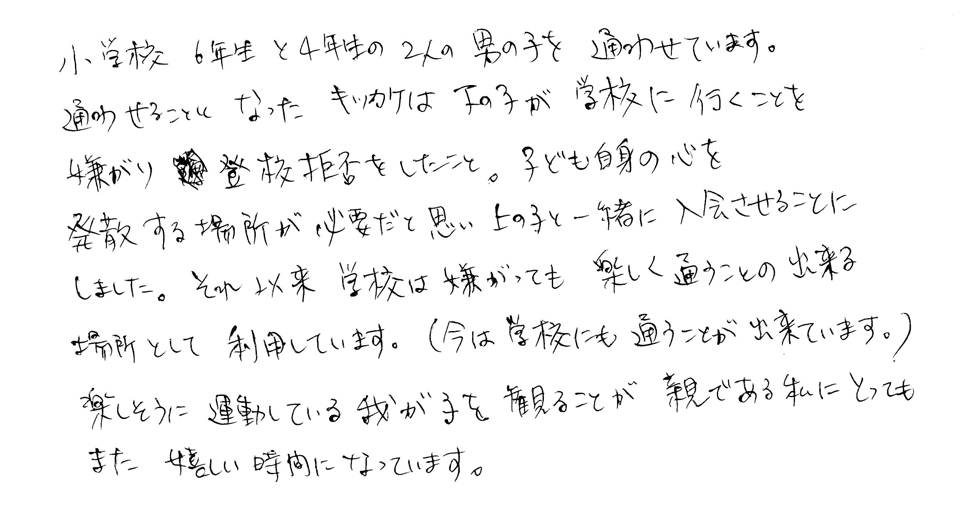 小学校 6年生と4年生の2人の男の子を 通わせています。
通わせることに なった キッカケは 下の子が 学校に行くことを
嫌がり 登校拒否をしたこと。子ども自身の心を
発散する場所が必要だと思い上の子と一緒に入会させることに
しました。それ以来 学校は嫌がっても 楽しく通うことの出来る
場所として 利用しています。(今は学校にも通うことが出来ています。)
楽しそうに運動している我が子を観ることが 親である私にとっても
また 嬉しい時間になっています。